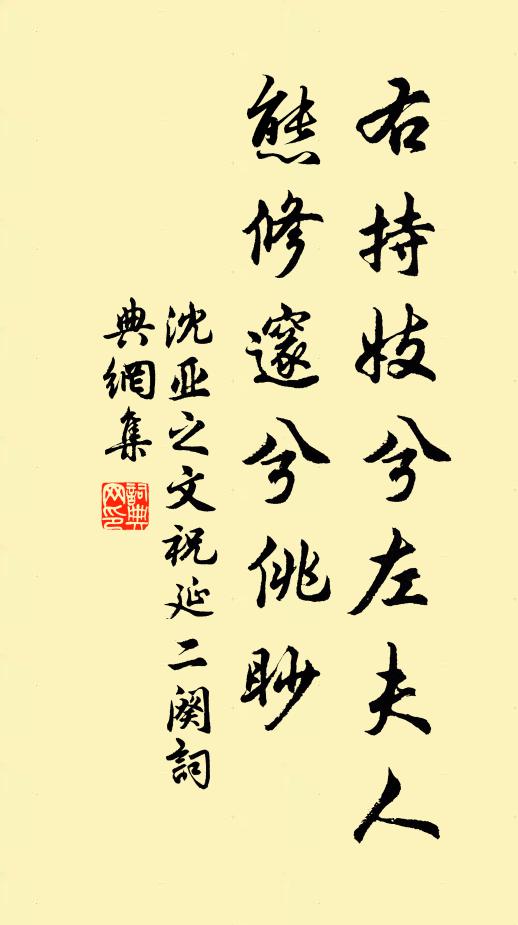 右持妓兮左夫人
態修邃兮佻眇
沈亚之文祝延二闋詞
典網集
詞典
网印